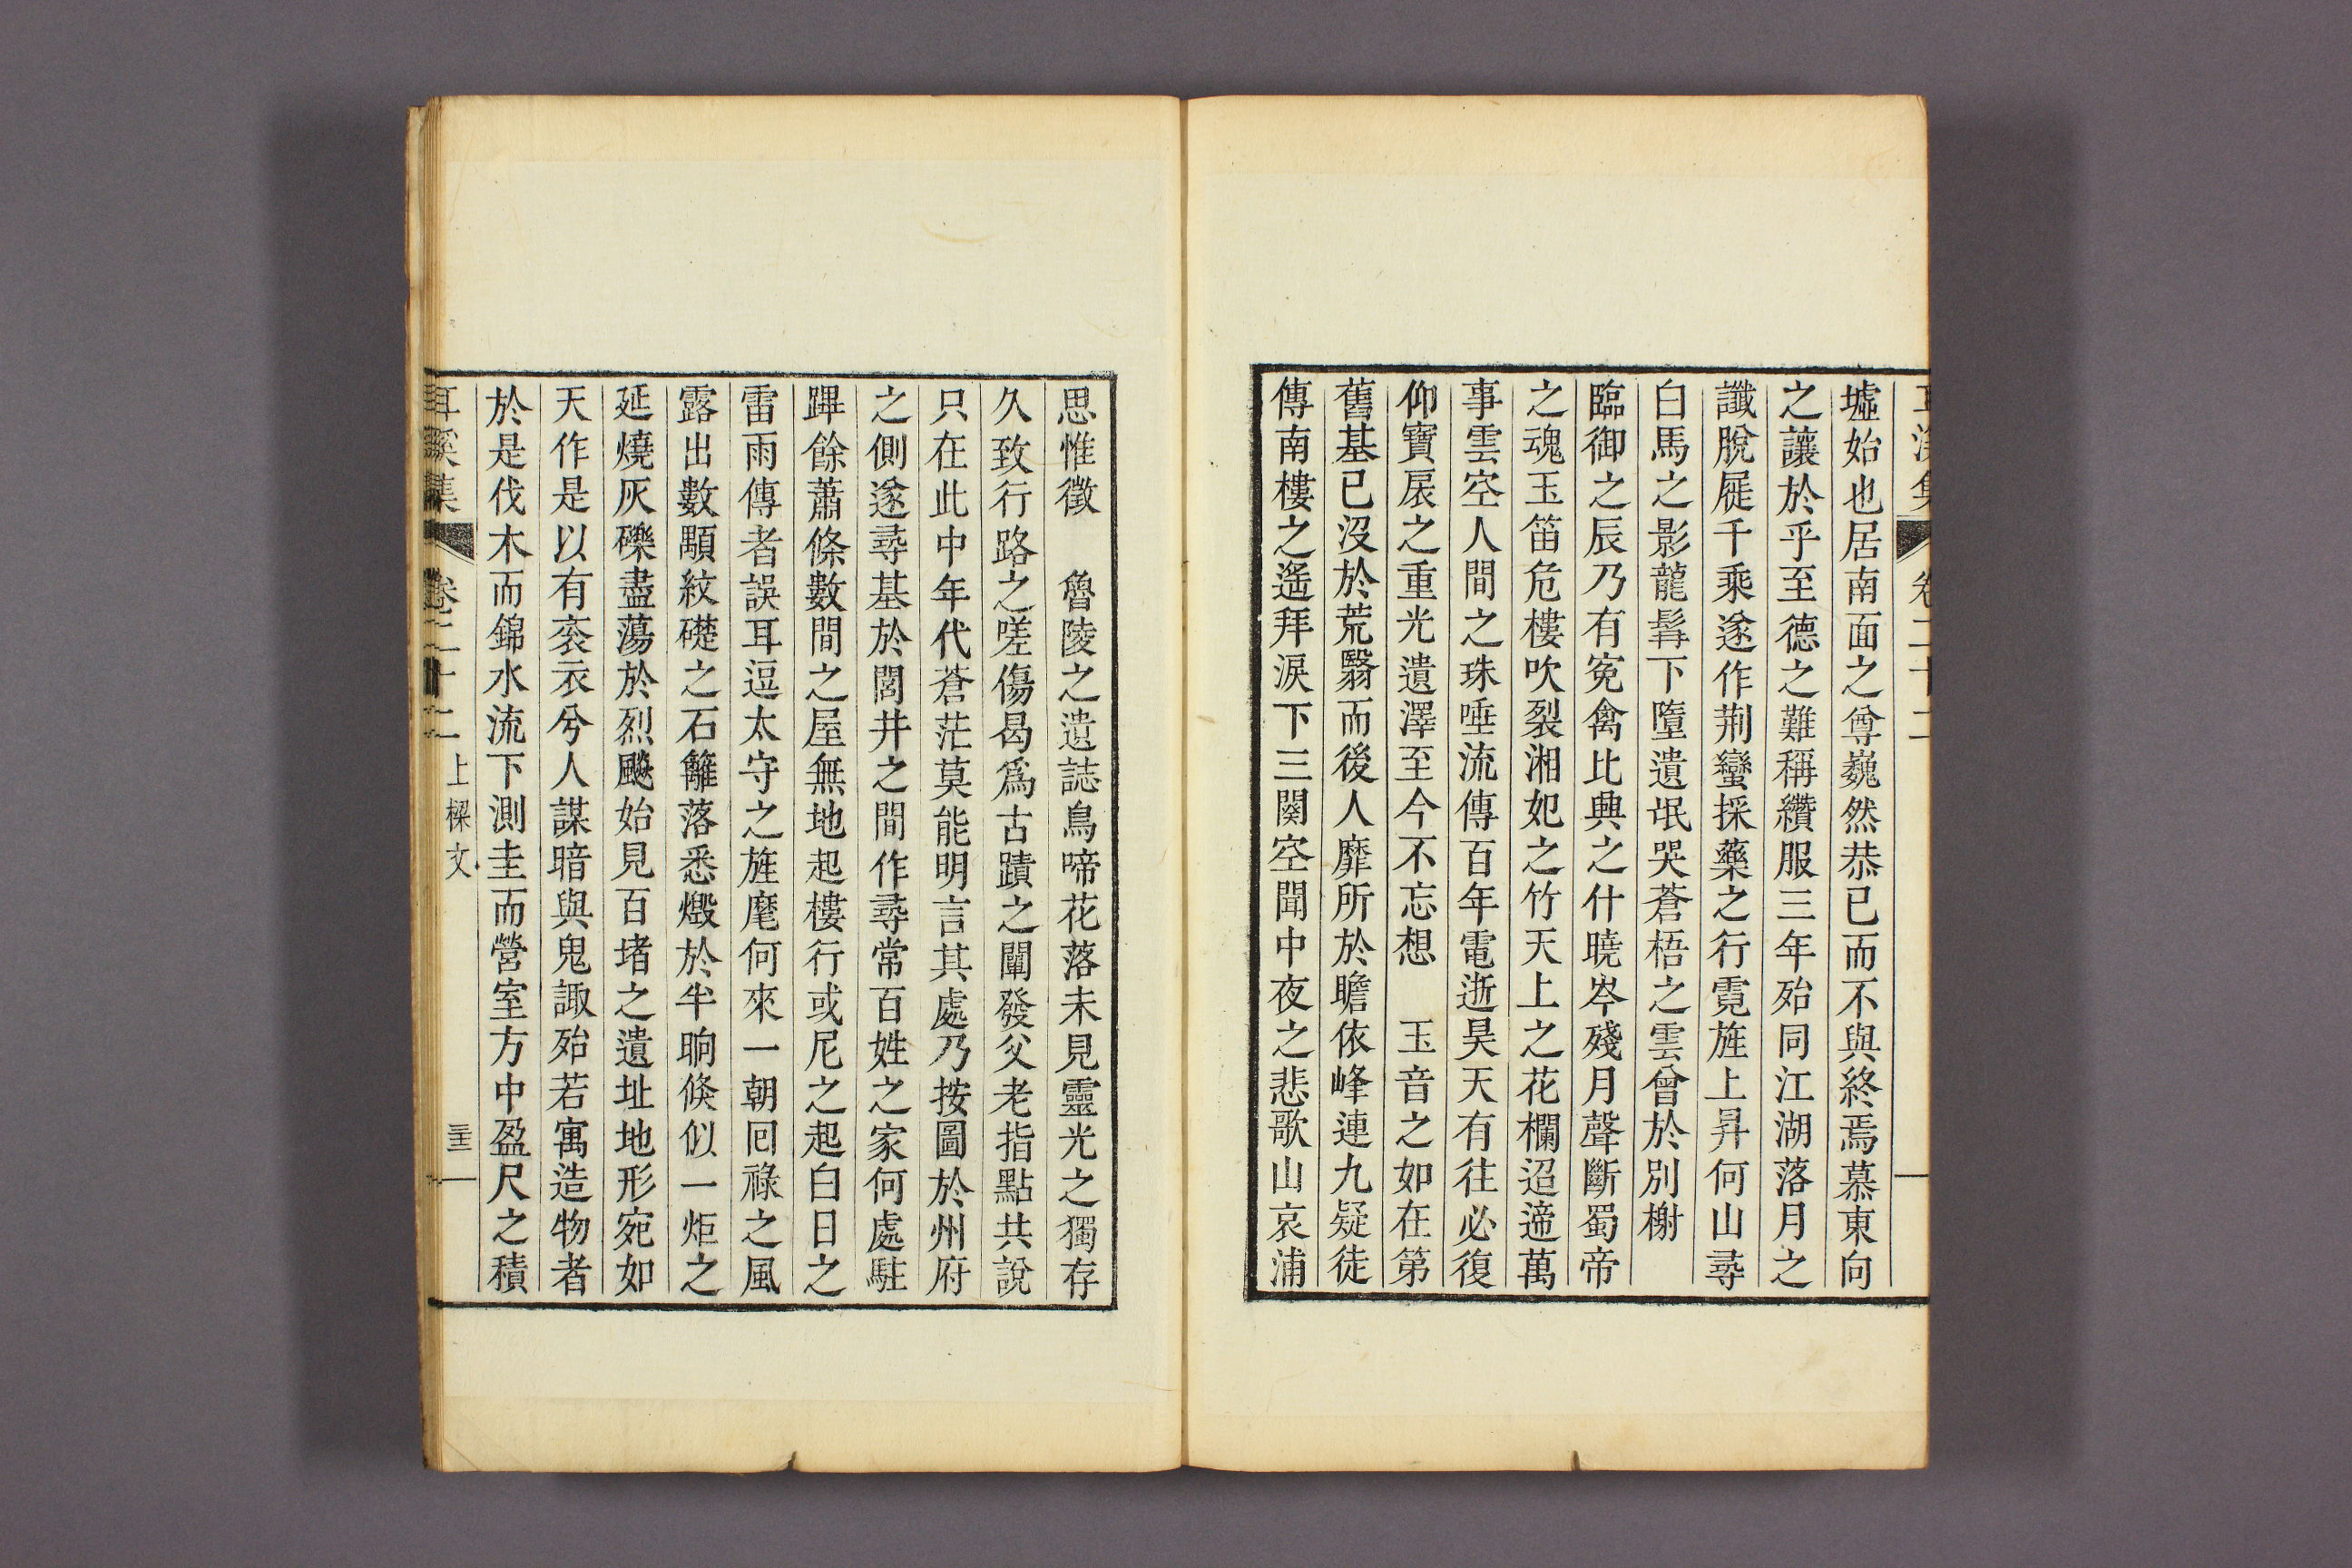 墟始也居南面之尊巍然恭已而不與終焉慕東向
之讓於乎至德之難稱纘服三年殆同江湖落月之
讖脫屣千乘遂作荆蠻採藥之行霓旌上昇何山尋
白馬之影龍髯下墮遺氓哭蒼梧之雲曾於別榭
臨御之辰乃有寃禽比興之什曉岑殘月聲斷蜀帝
之魂玉笛危樓吹裂湘妃之竹天上之花欄迢遆萬
事雲空人間之珠唾流傳百年電逝昊天有往必復
仰寶扆之重光遺澤至今不忘想　玉音之如在第
舊基已沒於荒翳而後人靡所於瞻依峰連九疑徒
傳南樓之遙拜淚下三闋空聞中夜之悲歌山哀浦
思惟徵　魯陵之遺誌鳥啼花落未見靈光之獨存
久致行路之嗟傷曷爲古蹟之闡發父老指點共說
只在此中年代蒼茫莫能明言其處乃按圖於州府
之側遂尋基於閭井之間作尋常百姓之家何處駐
蹕餘蕭條數間之屋無地起樓行或尼之起白日之
雷雨傳者誤耳逗太守之旌麾何來一朝回祿之風
露出數顆紋礎之石籬落悉燬於半晌倐似一炬之
延燒灰礫盡蕩於烈飈始見百堵之遺址地形宛如
天作是以有衮衣兮人謀暗與鬼諏殆若寓造物者
於是伐木而錦水流下測圭而營室方中盈尺之積
耳溪集　卷二十二　上樑文